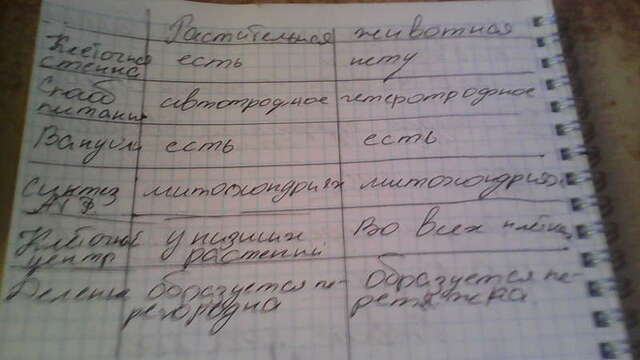 Растительная животная
Клеточная
стенка есть нету
Способ
питания автотродное гетеротродное
Вакуоли есть есть
Синтез
АТФ митохондриях митохондриях
Клеточный у низших Во всех клетках
центр растений
Деление образуется пе- Образуется пе-
регородка ретяжка